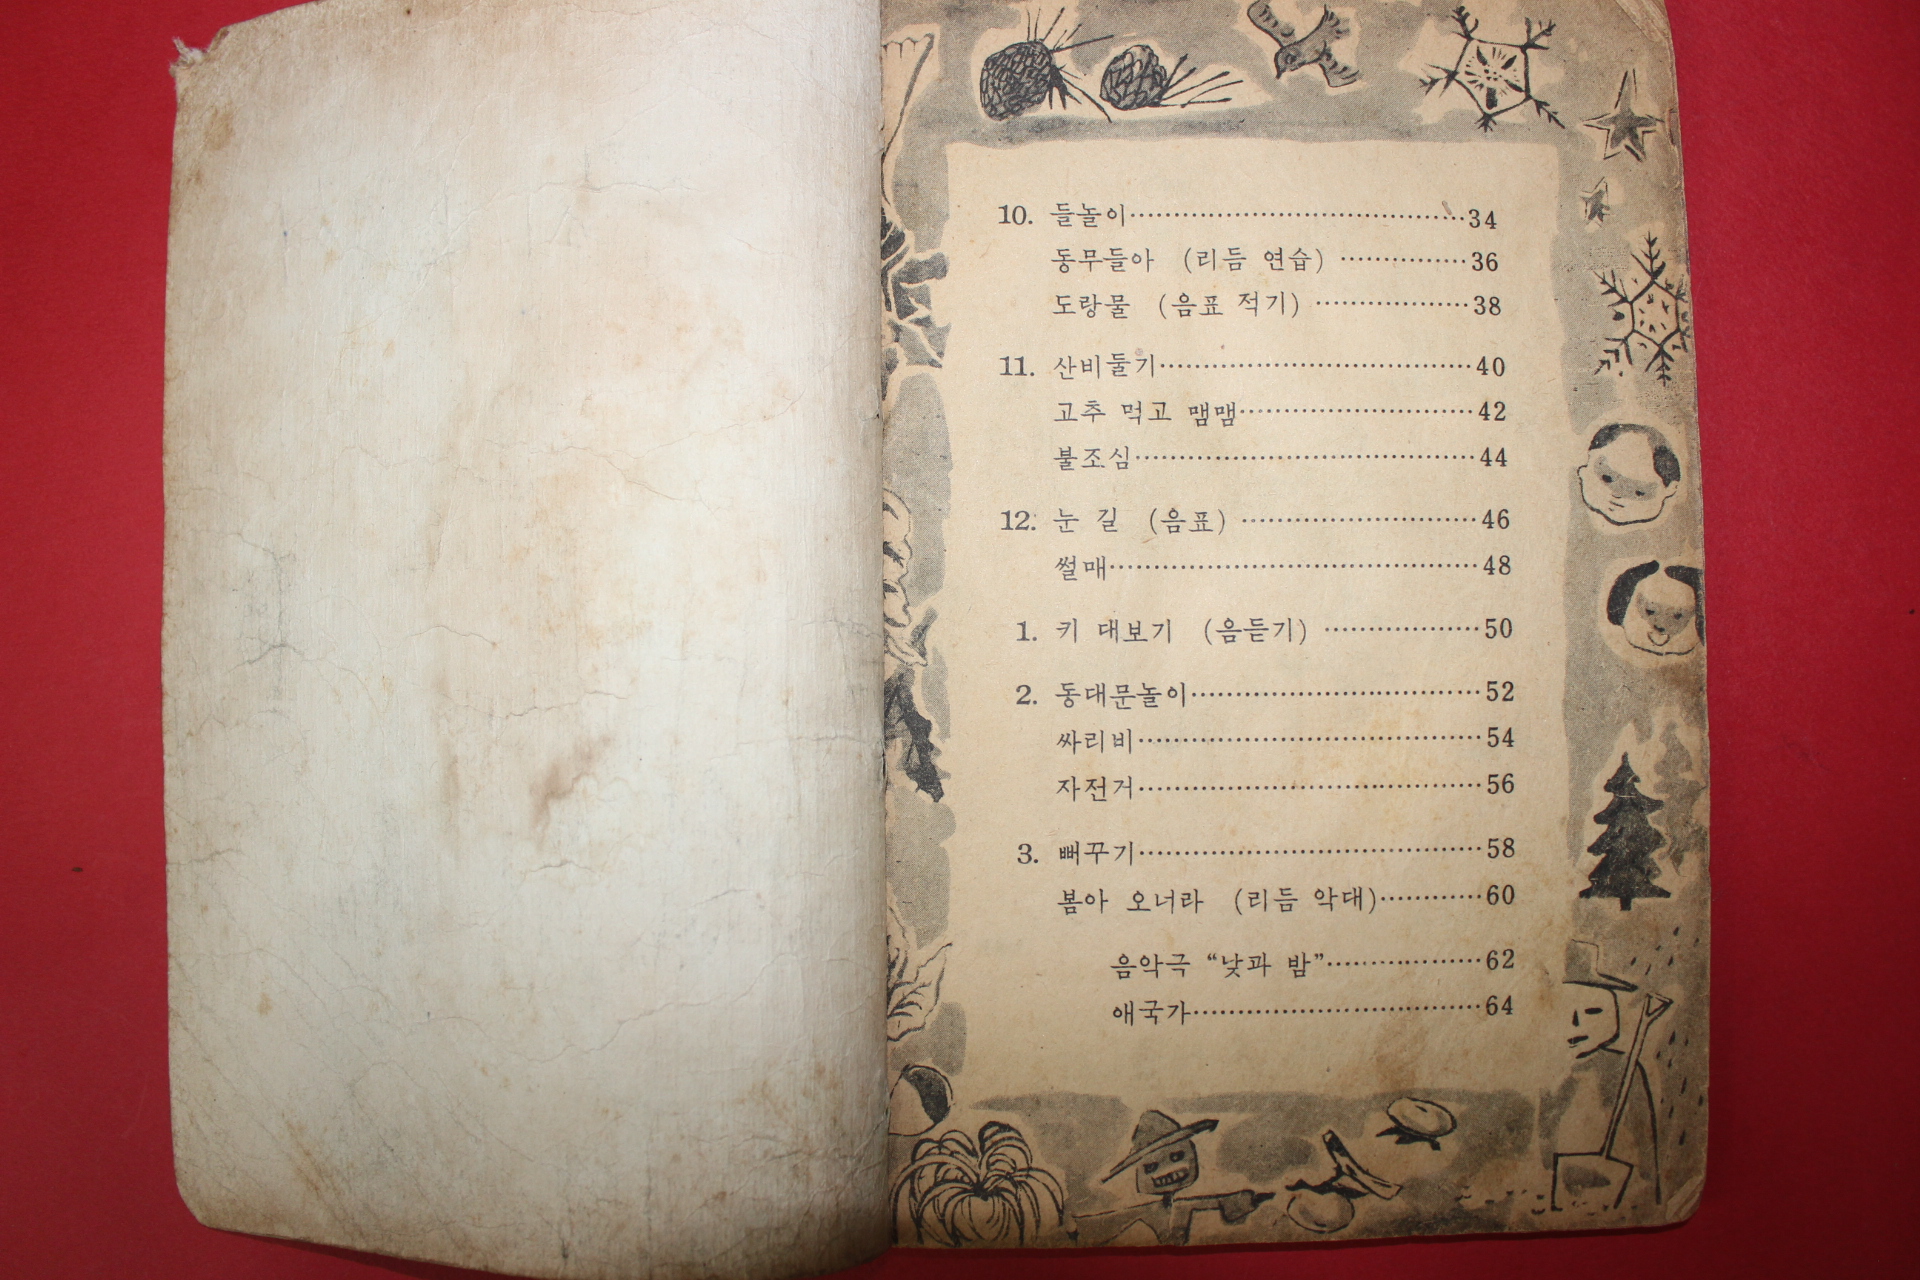 10. 들놀이……………………………………34
동무들아 (리듬 연습) ……………36
도랑물 (음표 적기) ………………38
11. 산비둘기…………………………………40
고추 먹고 맴맴………………………42
불조심……………………………………44
12. 눈 길 (음표) ………………………46
썰매………………………………………48
1. 키 대보기 (음듣기) ………………50
2. 동대문놀이………………………………52
싸리비……………………………………54
자전거……………………………………56
3. 뻐꾸기……………………………………58
봄아 오너라 (리듬 악대)…………60
음악극 “낮과 밤”………………62
애국가………………………………64